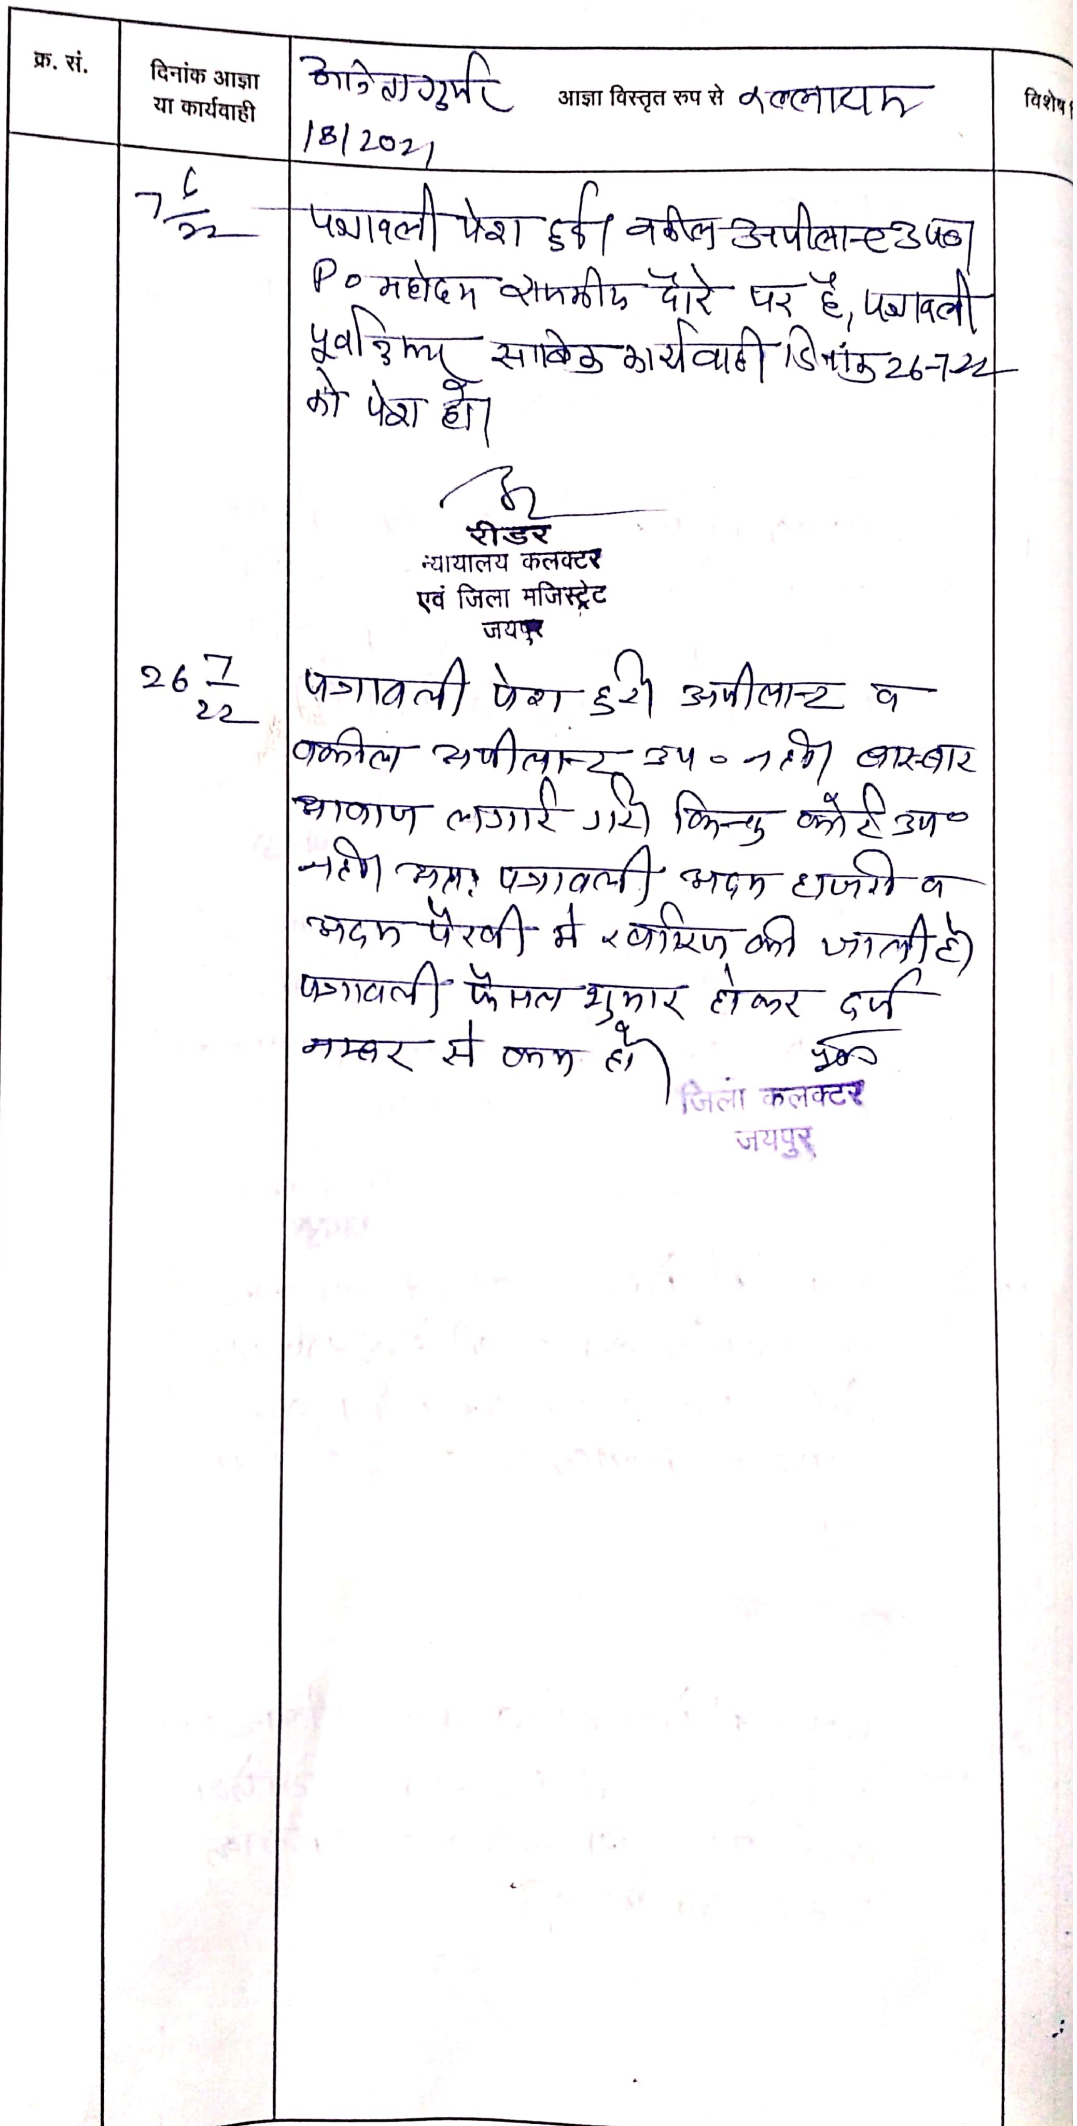 क्र. सं.
दिनांक आज्ञा
या कार्यवाही
आज्ञा विस्तृत रुप से
विशेष
18/2021
7 6/22
पत्रावली पेश हुई। वकील अपीलान्ट उप०।
P० महोदय राजकीय दौरे पर है, पत्रावली
पूर्वानुरूप साबिक कार्यवाही दिनांक 26-7-22
को पेश हो।
रीडर
न्यायालय कलक्टर
एवं जिला मजिस्ट्रेट
जयपुर
26 7/22
पत्रावली पेश हुयी अपीलान्ट व
वकील अपीलान्ट उप० नही। बारबार
आवाज लगाई गयी किन्तु कोई उप०
नही। अतः पत्रावली अदम हाजरी व
अदम पैरवी मे खारिज की जाती है।
पत्रावली फैसल शुमार होकर दर्ज
नम्बर से कम हो।
जिला कलक्टर
जयपुर